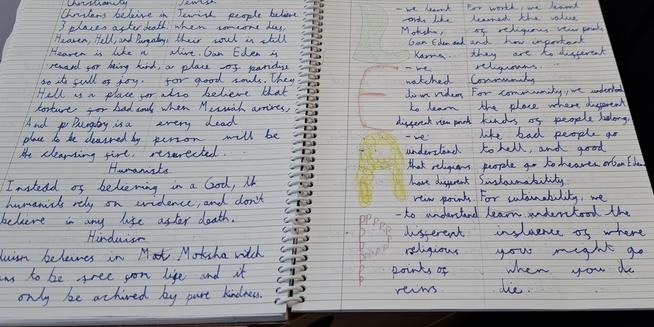 Christianity
Christens believe in
3 places aster death,
Heaven, Hell, and Purgaby.
Heaven is like a
reward for being kind,
so its full of joy.
Hell is a place for
torture for bad and
And Purgaby is a
place to be cleansed by
the cleansing fire.
Jewish
Jewish people believe
when someone dies,
their soul is still
alive. Gan Eden is
a place of paradise
for good souls. They
also believe that
when Messiah arrives,
every dead
person will be
resurected.
Humanists
Instead of believing in a God,
humanists rely on evidence, and don't
believe in any life after death.
Hinduism
believes in Moksha witch
to be free from life and it
only be achived by pure kindness.
- we learnt
words like
Moksha,
Gan Eden and
Karma.
- we
watched
videos
to learn
different view points
- we
understand
that religious
have different
vein points.
- to understand
different
religious
points of
veins
For worth, we learnt
learned the value
of religious view points
and how important
they are to different
religions.
Community
For community, we understand
the place where different
kinds of people belong,
like bad people go
to hell, and good
people go to heaven or Gan Eden
Sustainability
For sutainability, we
learn understood the
influence of where
you might go
when you do
die.